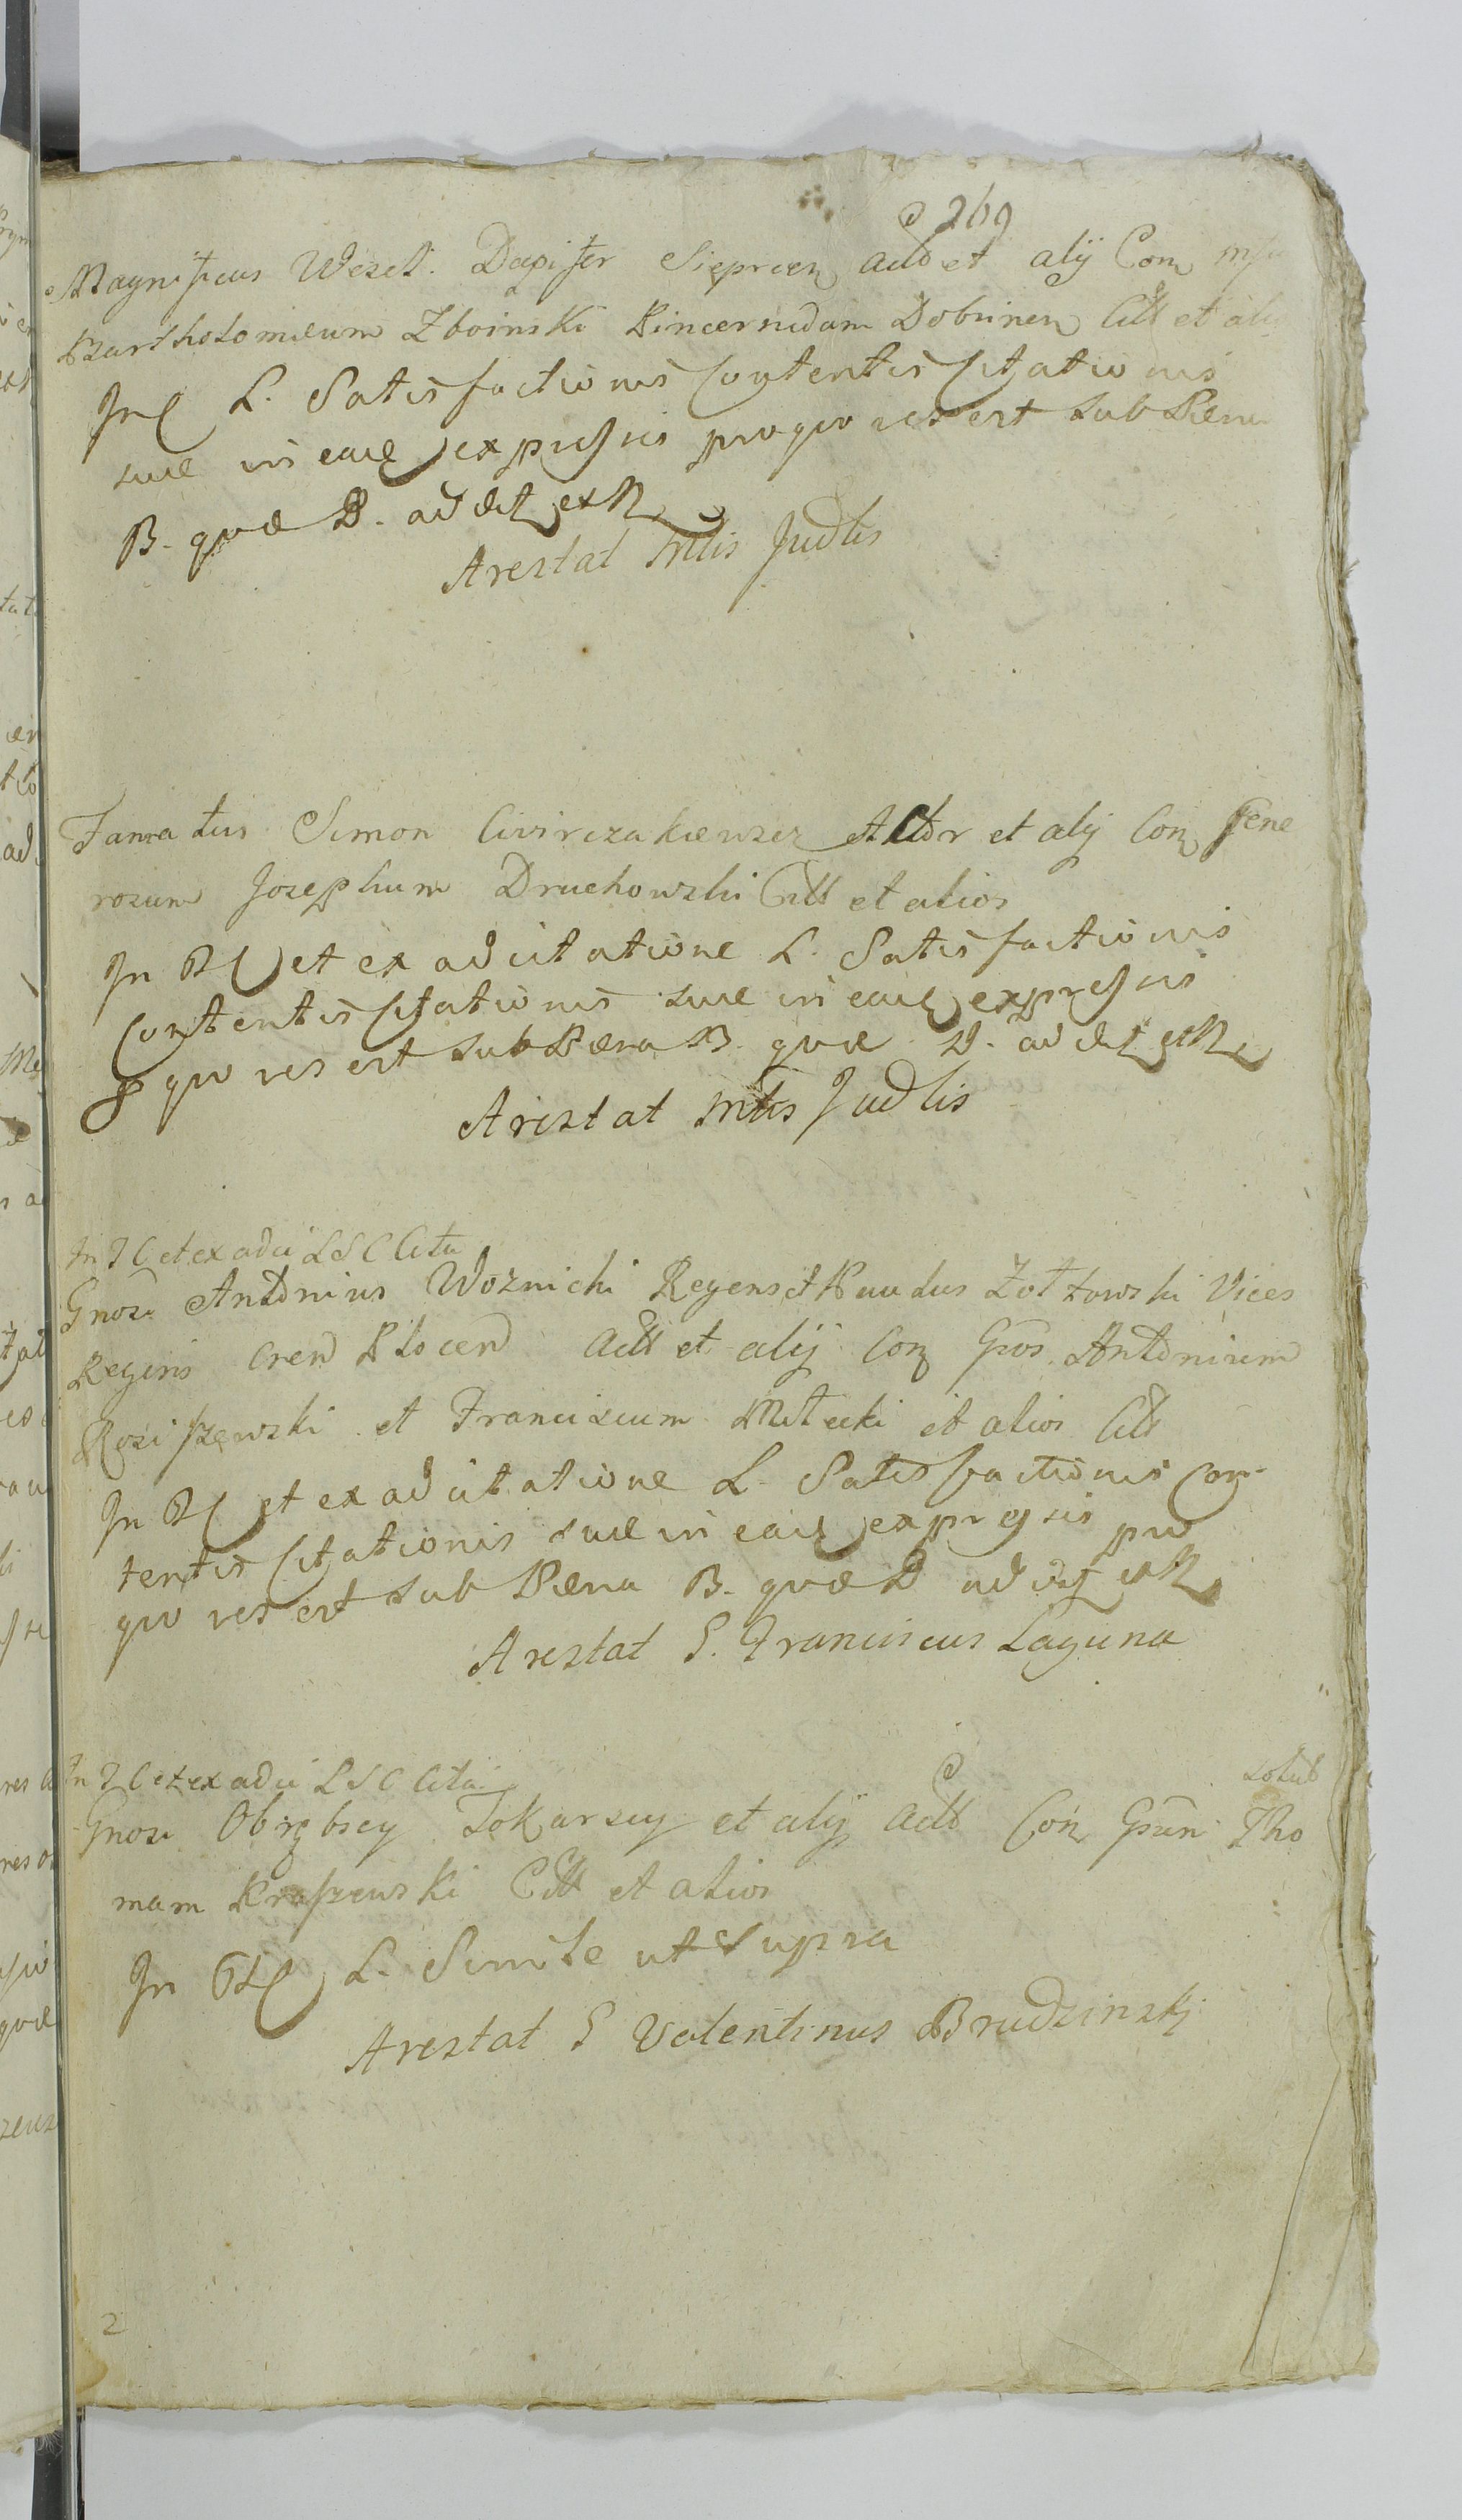 269
Magnificus Wessel Dapifer Sieprcen Actor et alij Con
Bartholomæum Zboinski Pincernidam Dobrinen Citt et alios
In C L. Satisfactionis Contentis Citationis
suæ in eaq expressis pro quo res est sub Pæna
B. quæ B. ad det ex R
Arestat Mtis Judlis
Famatus Simon Actor et alij Con Gene
rosum Josephum Druchowski Citt et alios
In C et ex adcitatione L. Satisfactionis
Contentis Citationis suæ in eaq expressis
quo res est sub Pæna B. quæ B. ad det ex R
Arestat Mtis Judlis
In C et ex adci L S C Cita
Gnosi Antonius Woznicki Regens et Paulus Zołtowski Vices
Regens Cren Plocen Actt et alij Con Gsos Antonium
Rosciszewski et Franciscum Mlecki et alios Citt
In C et ex adcitatione L. Satisfactionis Con
tentis Citationis suæ in eaq expressis pro
quo res est sub Pæna B. quæ B ad det ex R
Arestat G. Franciscus Laguna
In C et ex adci L S C Cita
Gnosi Obrębscy Tokarscy et alij Actt Con Gsum Tho
mam Kraszewski Citt et alios
In C L. Simile ut Supra
Arestat G Valentinus Brudzinski
2